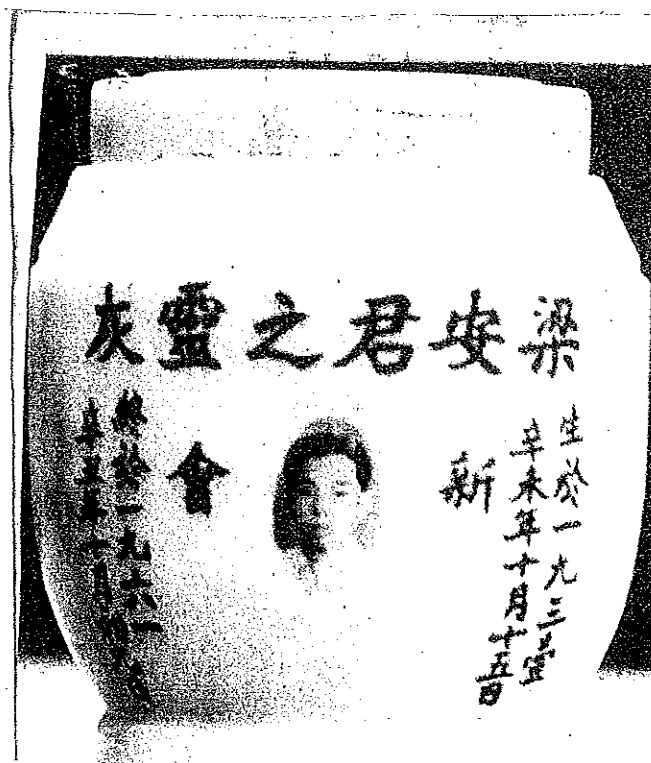 梁安君之靈灰
生於一九三
辛未年十月十五日
新會
終於一九六一年
辛丑年十月初